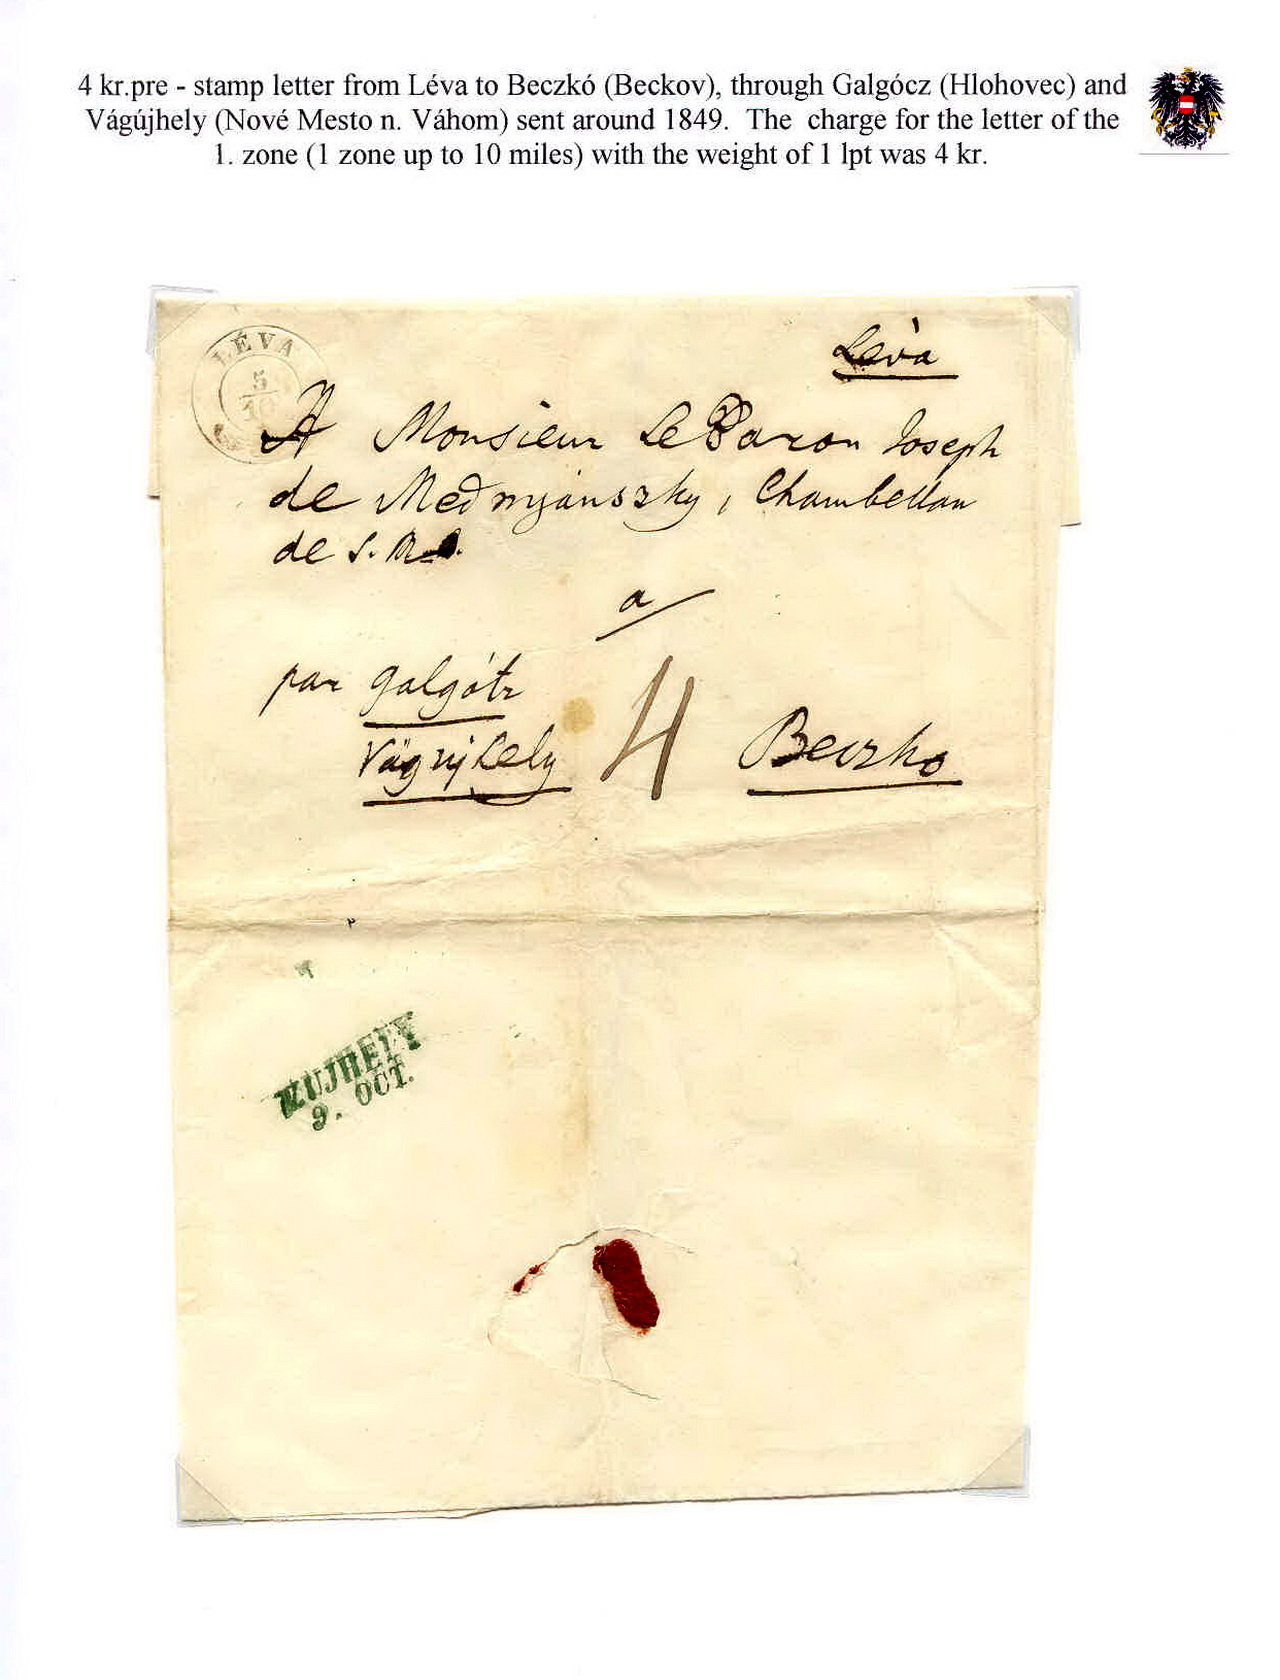 4 kr.pre - stamp letter from Léva to Beczkó (Beckov), through Galgócz (Hlohovec) and
Vágújhely (Nové Mesto n. Váhom) sent around 1849. The charge for the letter of the
1. zone (1 zone up to 10 miles) with the weight of 1 lpt was 4 kr.
LÉVA
5
10
Léva
A Monsieur Le Baron Joseph
de Mednyánszky, Chambellan
de S. M.
a
par Galgótz
Vágujhely 4 Beczko
UJHELY
9. OCT.